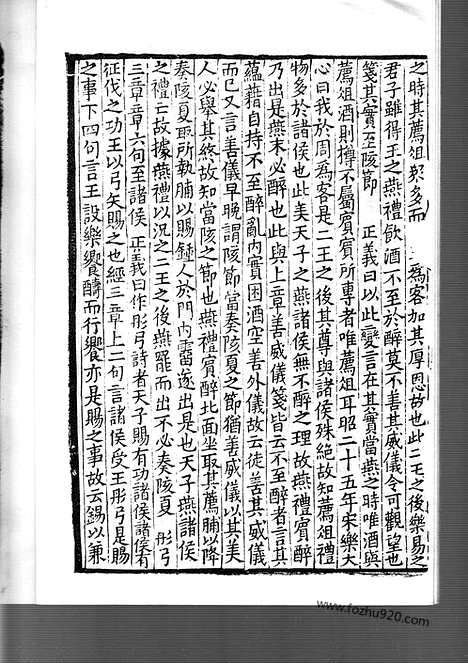 之時其薦俎衆多而為客加其厚恩故也此二王之後樂易之
君子雖得王之燕禮飲酒不至於醉莫不善其威儀令可觀望也
箋其實至陔節 正義曰以此變言在其實當燕之時唯酒與
薦俎酒則撙不屬賓賓所專者唯薦俎耳昭二十五年宋樂大
心曰我於周為客是二王之後其尊與諸侯殊絶故知薦俎禮
物多於諸侯也此美天子之燕諸侯無不醉之理故燕禮賓醉
乃出是燕末必醉也此與上章善威儀箋皆云不至醉者言其
蘊藉自持不至醉亂內實困酒空善外儀故云徒善其威儀
而已又言善儀早晚謂陔節當奏陔夏之節猶善威儀以其美
人必舉其終故知當陔之節也燕禮賓醉北面坐取其薦脯以降
奏陔夏取所執脯以賜鍾人於門內霤遂出是也天子燕諸侯
之禮亡故據燕禮以況之二王之後燕罷而出不必奏陔夏 彤弓
三章章六句至諸侯 正義曰作彤弓詩者天子賜有功諸侯諸侯有
征伐之功王以弓矢賜之也經三章上二句言諸侯受王彤弓是賜
之事下四句言王設樂饗醻而行饗亦是賜之事故云錫以兼
www.fozhu920.com